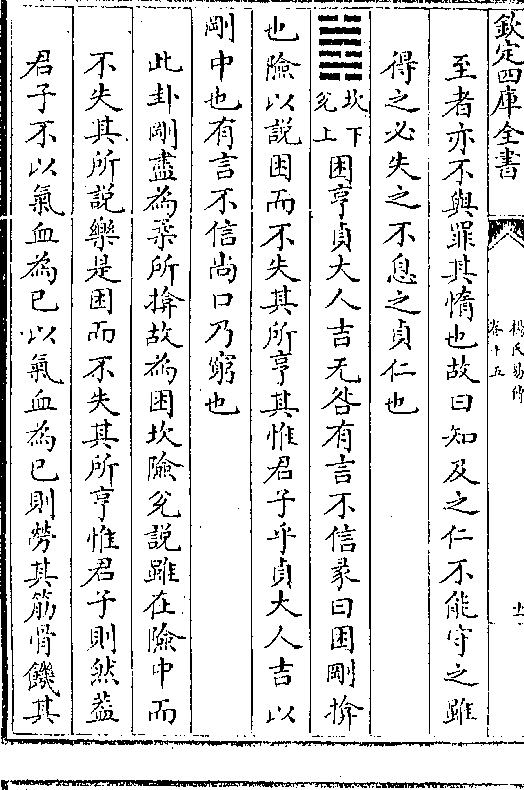 欽定四庫全書
楊氏易傳
卷十五
至者亦不與罪其惰也故曰知及之仁不能守之雖
得之必失之不息之貞仁也
䷮
坎下
兊上
困亨貞大人吉无咎有言不信彖曰困剛揜
也險以說困而不失其所亨其惟君子乎貞大人吉以
剛中也有言不信尚口乃窮也
此卦剛盡為柔所揜故為困坎險兊說雖在險中而
不失其所說樂是困而不失其所亨惟君子則然葢
君子不以氣血為已以氣血為已則勞其筋骨饑其